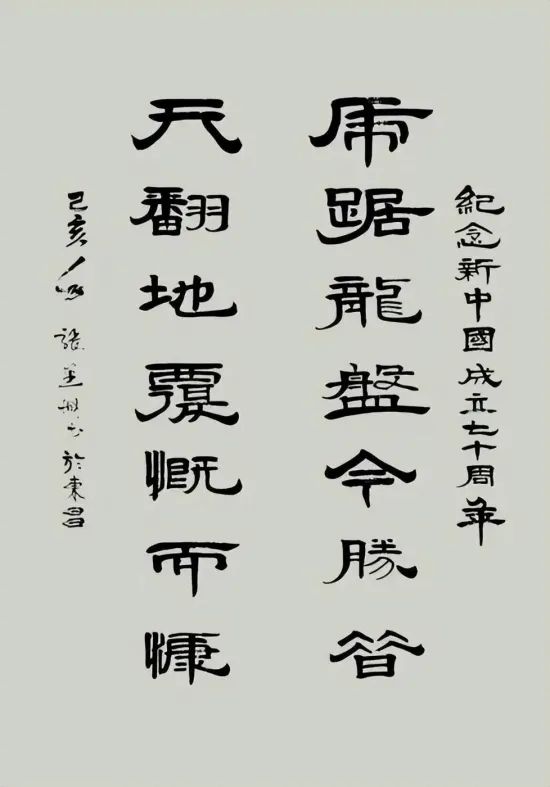 紀念新中國成立七十周年
虎踞龍盤今勝昔
天翻地覆慨而慷
己亥 張 於東昌